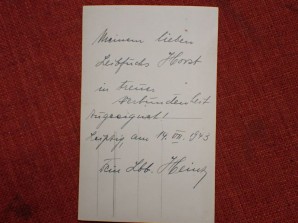 Meinem lieben
Leibfuchs Horst
in treuer
Verbundenheit
zugeeignet!
Leipzig, am 14. VII. 1943
Dein Lbb. Heinz